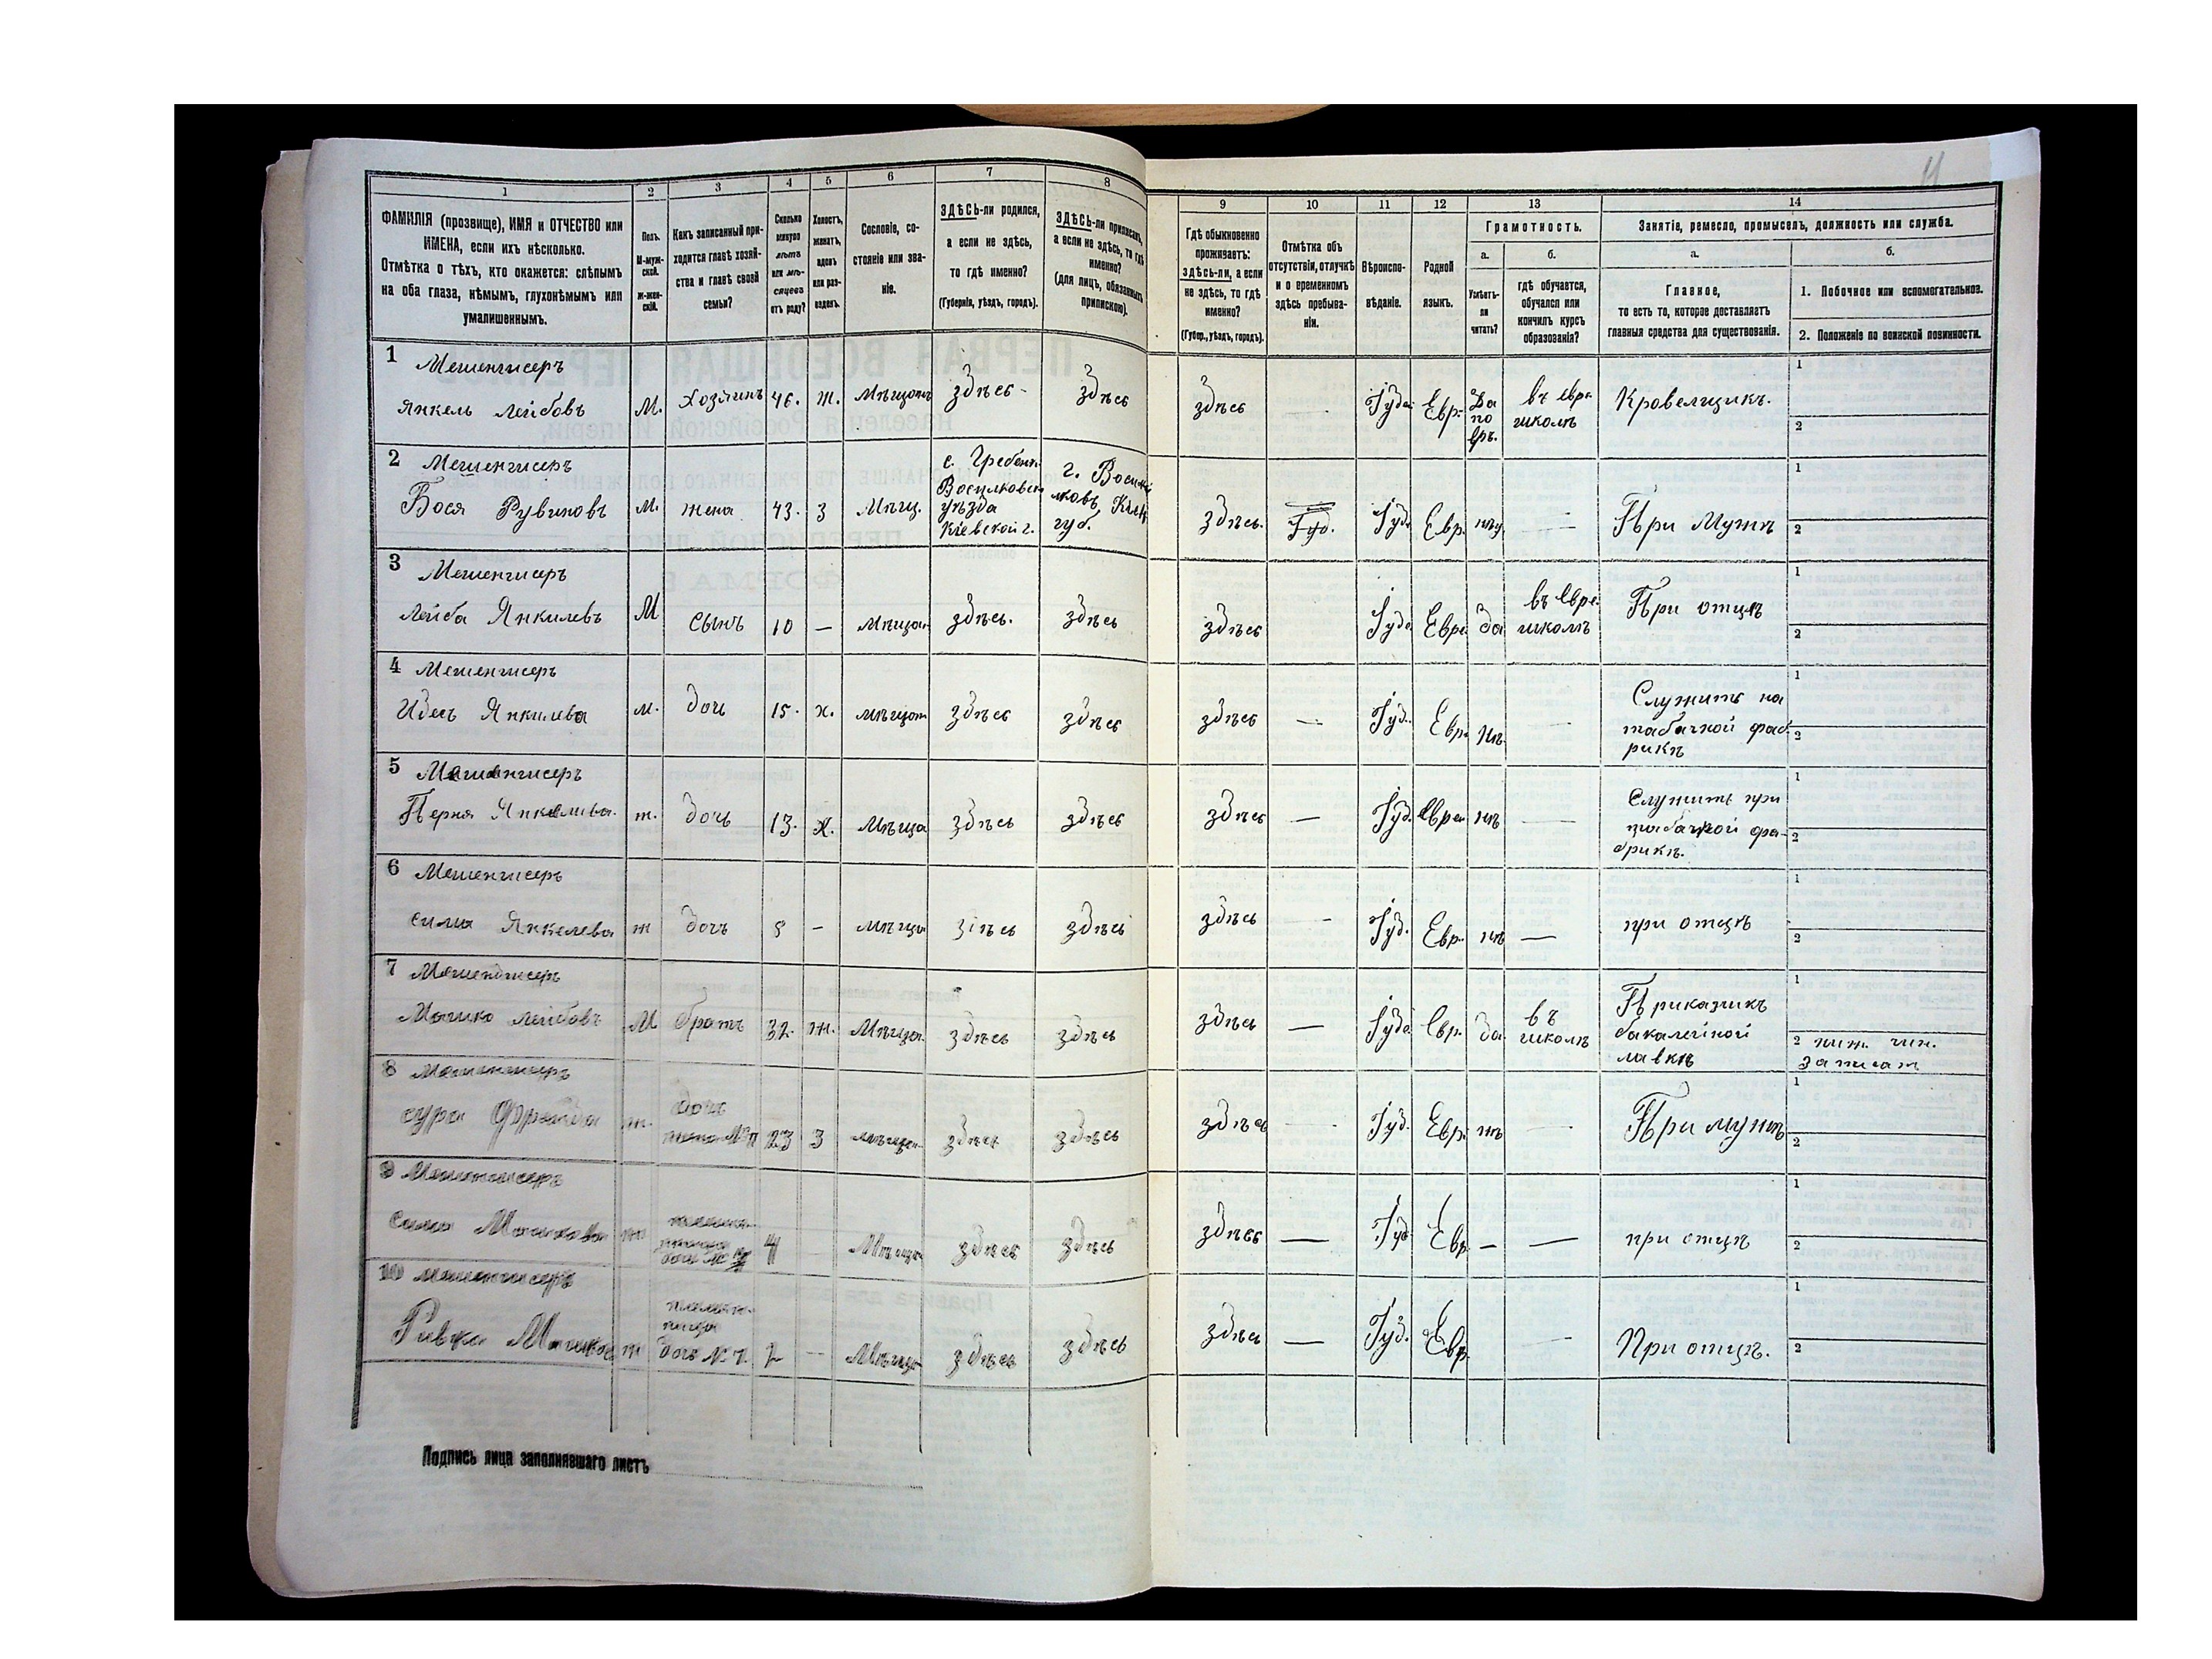 11
1 2 3 4 5 6 7 8 9 10 11 12 13 14
ФАМИЛІЯ (прозвище), ИМЯ и ОТЧЕСТВО или
ИМЕНА, если ихъ нѣсколько.
Отмѣтка о тѣхъ, кто окажется: слѣпымъ
на оба глаза, нѣмымъ, глухонѣмымъ или
умалишеннымъ.
Полъ.
М-муж-
ской.
ж-жен-
скій.
Какъ записанный при-
ходится главѣ хозяй-
ства и главѣ своей
семьи?
Сколько
минуло
лѣтъ
или мѣ-
сяцевъ
отъ роду?
Холостъ,
женатъ,
вдовъ
или раз-
веденъ.
Сословіе, со-
стояніе или зва-
ніе.
ЗДѢСЬ-ли родился,
а если не здѣсь,
то гдѣ именно?
(Губернія, уѣздъ, городъ).
ЗДѢСЬ-ли приписанъ,
а если не здѣсь, то гдѣ
именно?
(для лицъ, обязанныхъ
припискою).
Гдѣ обыкновенно
проживаетъ:
здѣсь-ли, а если
не здѣсь, то гдѣ
именно?
(Губер., уѣздъ, городъ).
Отмѣтка объ
отсутствіи, отлучкѣ
и о временномъ
здѣсь пребыва-
ніи.
Вѣроиспо-
вѣданіе.
Родной
языкъ.
Грамотность.
а.
Умѣетъ-
ли
читать?
б.
гдѣ обучается,
обучался или
кончилъ курсъ
образованія?
Занятіе, ремесло, промыселъ, должность или служба.
а.
Главное,
то есть то, которое доставляетъ
главныя средства для существованія.
б.
1. Побочное или вспомогательное.
2. Положеніе по воинской повинности.
1 Мешенгисеръ
Янкель Лейбовъ М. Хозяинъ 46. Ж. Мѣщан здѣсь здѣсь здѣсь Іуд Евр. Да въ Евр. Кровельщикъ.
по школѣ
Евр.
2 Мешенгисеръ
Бося Рувиновъ М. жена 43. З Мѣщ. с. Гребенк г. Васил здѣсь. Іуд. Іуд. Евр. нѣ При Мужѣ
Васильковск
уѣзда
Кіевской г.
ковъ, Кіев
губ.
3 Мешенгисеръ
Лейба Янкилевъ М сынъ 10 — Мѣщан здѣсь. здѣсь здѣсь Іуд Евр. да въ Евре. При отцѣ
школѣ
4 Мешенгисеръ
Идесъ Янкилева м. дочь 15. х. мѣщан здѣсь здѣсь здѣсь — Іуд. Евр. нѣ. Служитъ на
табачной фаб
рикѣ
5 Мешенгисеръ
Перля Янкелива. ж. дочь 13. х. Мѣща здѣсь здѣсь здѣсь — Іуд. Евре нѣ — Служитъ при
табачной фа-
брикѣ.
6 Мешенгисеръ
Сима Янкелева ж дочь 5 — мѣща здѣсь здѣсь здѣсь — Іуд. Евр. нѣ — при отцѣ
7 Мешенгисеръ
Мошко Лейбовъ М братъ 32. ж. Мѣща. здѣсь здѣсь здѣсь — Іуд. Евр. да въ Приказчикъ
школѣ бакалейной
лавкѣ
2 ниж. чин.
запаса
8 Мешенгисеръ
Сура Фрейда ж. 23 З мѣщан здѣсь здѣсь здѣсь Іуд. Евр. нѣ При мужѣ
9 Мешенгисеръ
Сима Мошкова ж племян. дочь № 7 4 Мѣща здѣсь здѣсь здѣсь — Іуд. Евр. — — при отцѣ
10 Мешенгисеръ
Ривка Мошков ж племян.
ница
дочь № 7. 2 — Мѣща здѣсь здѣсь здѣсь — Іуд. Евр. При отцѣ.
Подпись лица заполнявшаго листъ